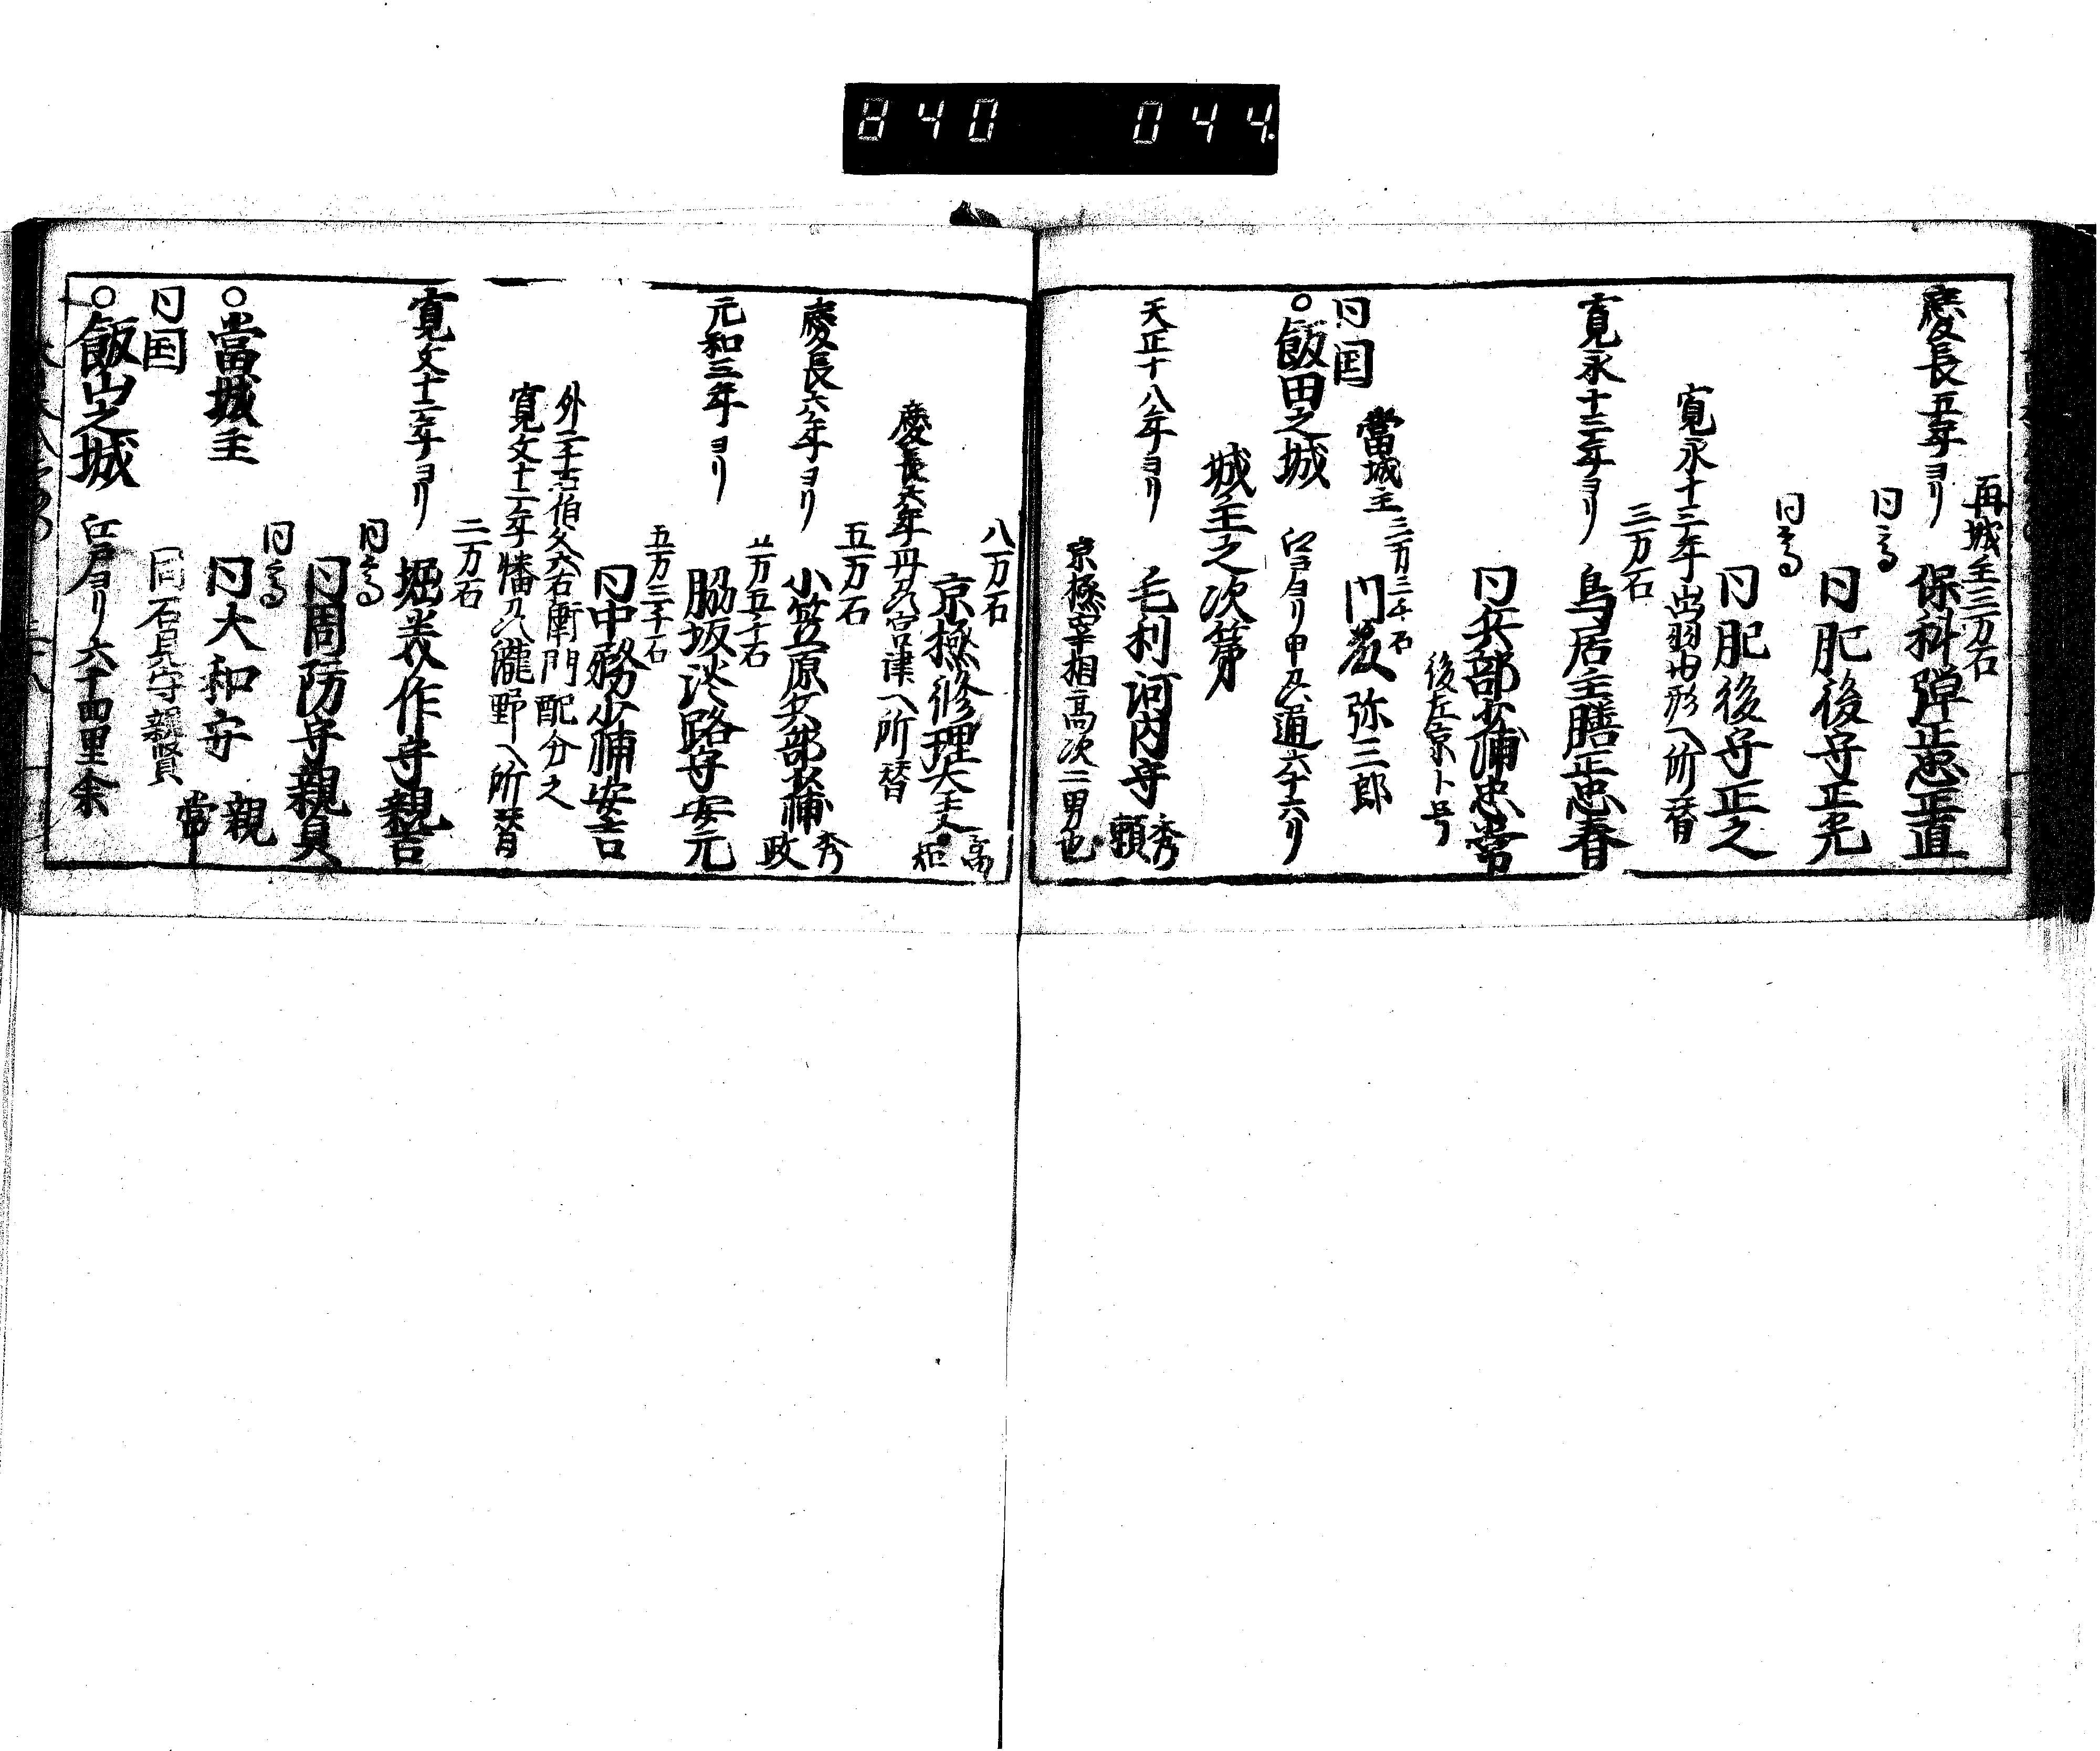 840 044
再城主三万石
慶長五年ヨリ 保科弾正忠正直
同高
同肥後守正光
同高
同肥後守正之
寛永十三年出羽山形へ所替
三万石
寛永十三年ヨリ 鳥居主膳正忠春
同兵部少輔忠常
後左京ト号
當城主 三万二千石 同 弥三郎
同国
○飯田之城 六十六リ
城主之次第
天正十八年ヨリ 毛利河内守秀頼
京極宰相高次二男也
八万石
京極修理大夫高知
慶長六年丹後宮津へ所替
五万石
慶長六年ヨリ 小笠原兵部少輔秀政
五万五千石
元和三年ヨリ 脇坂淡路守安元
五万三千石
同中務少輔安吉
外二千石伯父六右衛門配分之
寛文十二年播州瀧野へ所替
二万石
寛文十二年ヨリ 堀美作守親吉
同高
同周防守親貞
同高
○當城主 同大和守親常
同石見守親賢
同国
○飯山之城 江戸ヨリ六十四里余